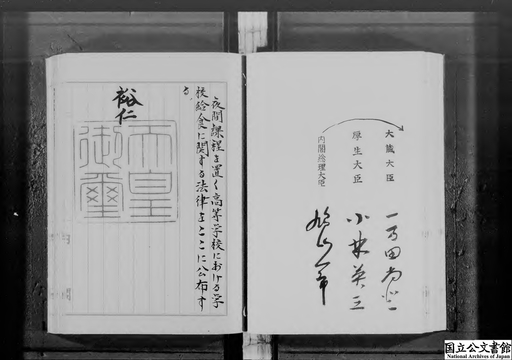 大蔵大臣
一万田尚登
厚生大臣
小林英三
内閣総理大臣
鳩山一郎
夜間課程を置く高等学校における学
校給食に関する法律をここに公布す
る
裕仁
天皇
御璽
国立公文書館
National Archives of Japan